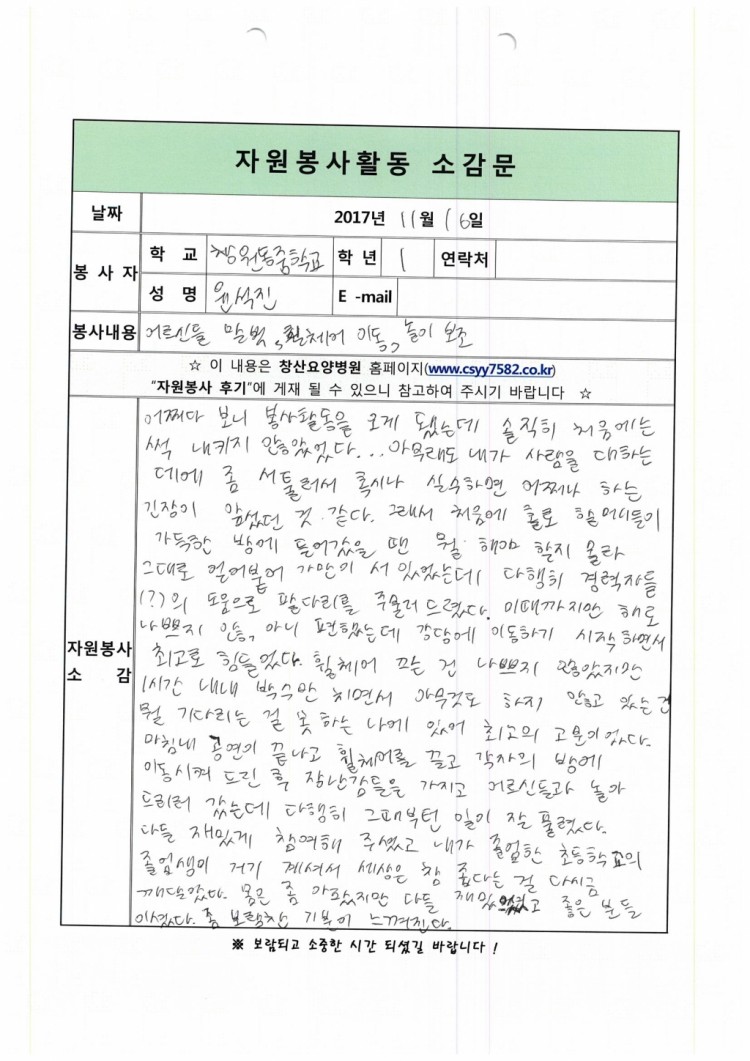 자원봉사활동 소감문
날짜 2017년 11월 16일
봉사자 학교 창원동중학교 학년 1 연락처
성명 윤석진 E-mail
봉사내용 어르신들 말벗, 휠체어 이동, 놀이 보조
☆ 이 내용은 창산요양병원 홈페이지(www.csyy7582.co.kr)
"자원봉사 후기"에 게재 될 수 있으니 참고하여 주시기 바랍니다 ☆
자원봉사 소감
어쩌다 보니 봉사활동을 오게 됐는데 솔직히 처음에는
썩 내키지 않았었다... 아무래도 내가 사람을 대하는
데에 좀 서툴러서 혹시나 실수하면 어쩌나 하는
긴장이 앞섰던 것 같다. 그래서 처음에 홀로 할머니들이
가득한 방에 들어갔을 땐 뭘 해야 할지 몰라
그대로 얼어붙어 가만히 서 있었는데 다행히 경력자들
(?)의 도움으로 팔다리를 주물러 드렸다. 이때까지만 해도
나쁘지 않음, 아니 편했는데 강당에 이동하기 시작하면서
최고로 힘들었다. 휠체어 끄는 건 나쁘지 않았지만
1시간 내내 박수만 치면서 아무것도 하지 않고 있는 건
뭘 기다리는 걸 못 하는 나에 있어 최고의 고문이었다.
마침내 공연이 끝나고 휠체어를 끌고 각자의 방에
이동시켜 드린 후 장난감들을 가지고 어르신들과 놀아
드리러 갔는데 다행히 그때부턴 일이 잘 풀렸다.
다들 재밌게 참여해 주셨고 내가 졸업한 초등학교의
졸업생이 거기 계셔서 세상은 참 좁다는 걸 다시금
깨달았다. 몸은 좀 아팠지만 다들 재밌었고 좋은 분들
이셨다. 좀 보람찬 기분이 느껴진다.
※ 보람되고 소중한 시간 되셨길 바랍니다 !